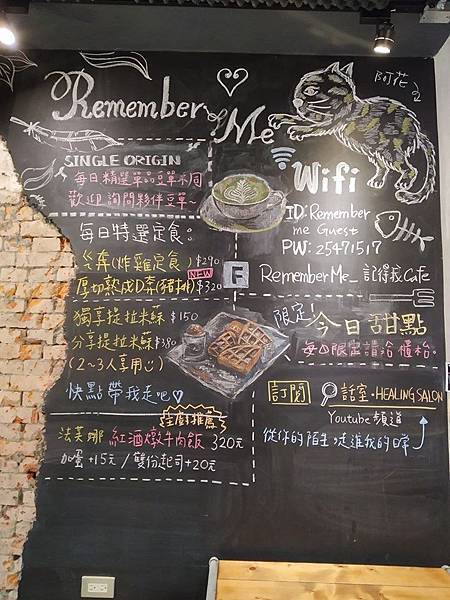 Remember Me
阿花
SINGLE ORIGIN
每日精選單品豆單不同
歡迎詢問夥伴豆單~
Wifi
ID: Remember me Guest
PW: 25471517
RememberMe_ 記得我Cafe
每日特選定食:
ㄍ奔(炸雞定食) $290
NEW
厚切熟成D茶(豬排) $320
獨享提拉米蘇 $150
分享提拉米蘇 $380
(2~3人享用)
快點帶我走吧♡
限定!
今日甜點
每日限定請洽櫃枱。
主廚推薦
法芙娜紅酒燉牛肉飯 320元
加蛋+15元 / 雙份起司+20元
訂閱
託室·HEALING SALON
Youtube 頻道
從你的陌生走進我的日常